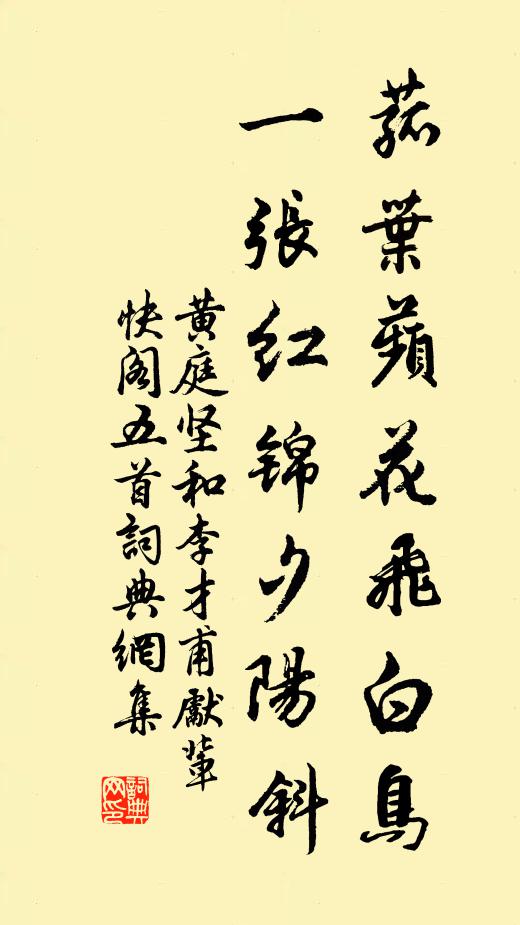 菰葉蘋花飛白鳥
一張紅錦夕陽斜
黄庭坚和李才甫獻輩
快阁五首詞典網集
詞典網印